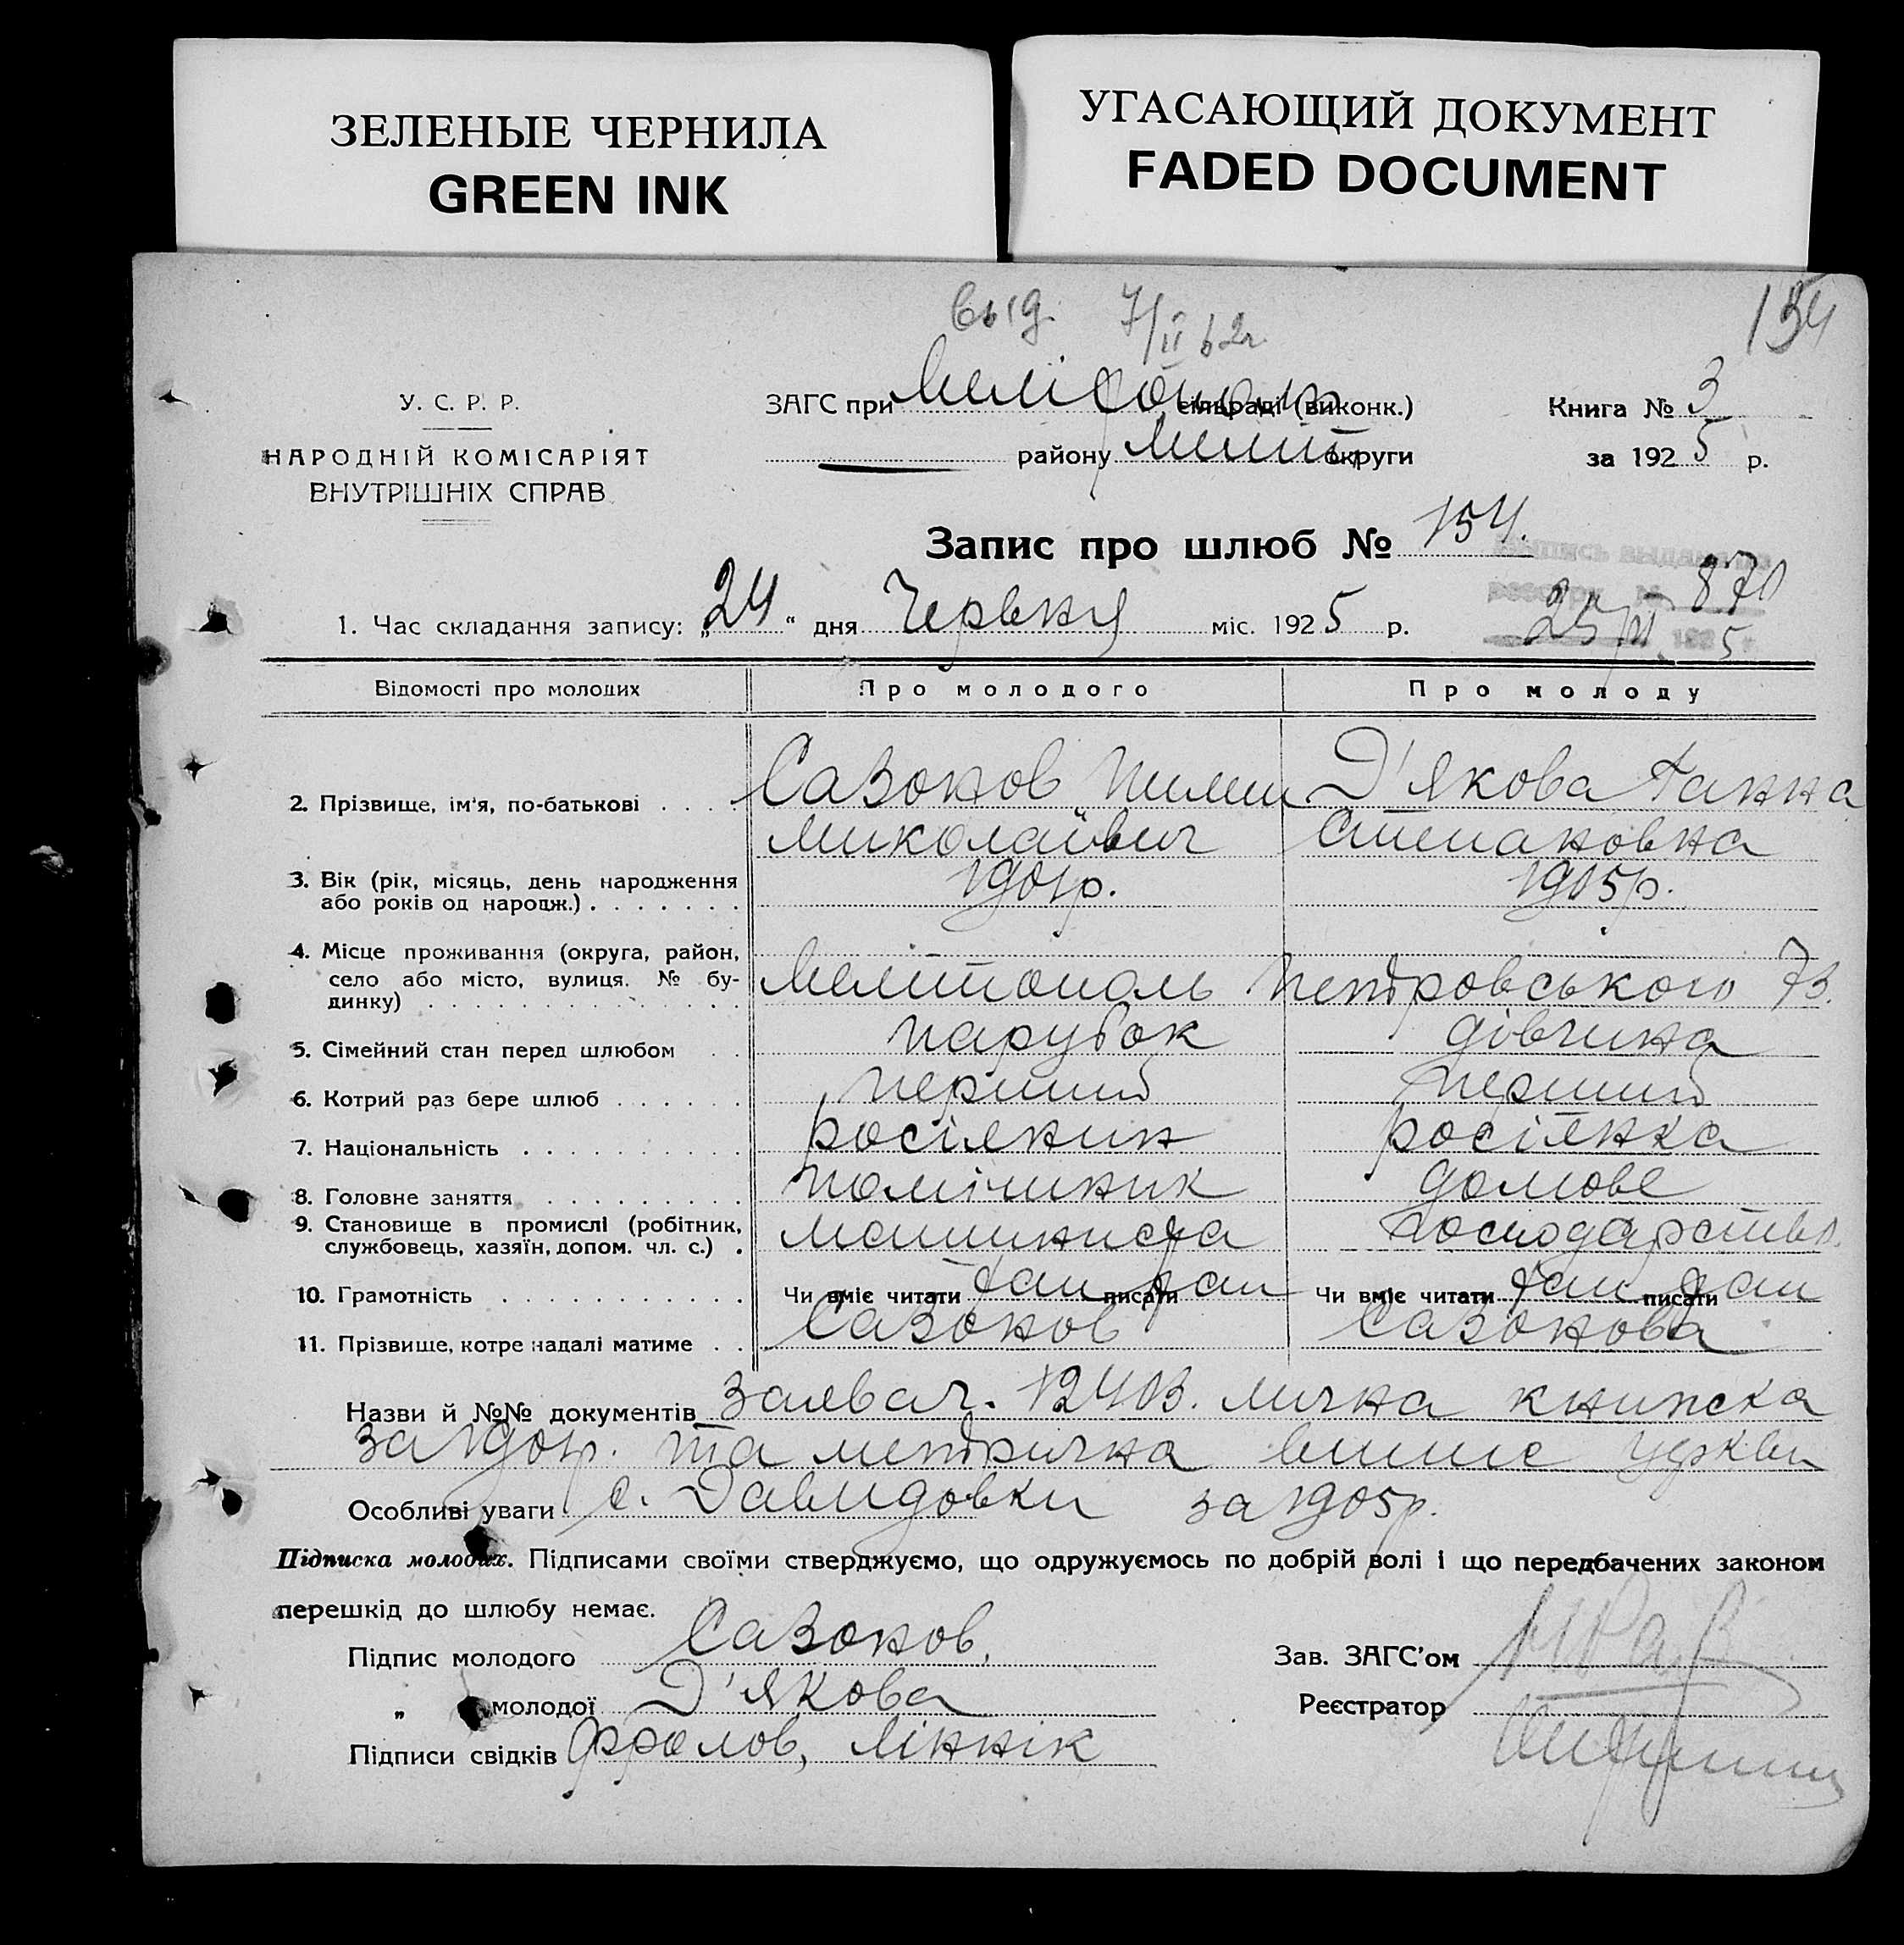 ЗЕЛЕНЫЕ ЧЕРНИЛА
GREEN INK
УГАСАЮЩИЙ ДОКУМЕНТ
FADED DOCUMENT
134
У. С. Р. Р.
НАРОДНІЙ КОМІСАРІЯТ
ВНУТРІШНІХ СПРАВ
ЗАГС при сільраді (виконк.)
району Меліт. округи
Книга № 3
за 1925 р.
Запис про шлюб № 154.
Выпись выдана по
870
1. Час складання запису: „24“ дня Червня міс. 1925 р.
Відомості про молодих
Про молодого
Про молоду
2. Прізвище, ім'я, по-батькові
Сазонов Пимен Миколаївич
Д'якова Ганна Степановна
3. Вік (рік, місяць, день народження або років од народж.)
1901р.
1905р.
4. Місце проживання (округа, район, село або місто, вулиця. № будинку)
Мелітополь Петровського 73.
5. Сімейний стан перед шлюбом
парубок
дівчина
6. Котрий раз бере шлюб
перший
перший
7. Національність
росіянин
росіянка
8. Головне заняття
помічник
домове
9. Становище в промислі (робітник, службовець, хазяїн, допом. чл. с.)
машиниста
господарство
10. Грамотність
Чи вміє читати так писати так
Чи вміє читати так писати так
11. Прізвище, котре надалі матиме
Сазонов
Сазонова
Назви й №№ документів лична книжка
за 1901р. та метрична випис церкви
Особливі уваги с. Давидовки за 1905р.
Підписка молодих. Підписами своїми стверджуємо, що одружуємось по добрій волі і що передбачених законом
перешкід до шлюбу немає.
Підпис молодого Сазонов,
„ молодої Д'якова
Підписи свідків Фролов,Ліннік
Зав. ЗАГС'ом
Реєстратор